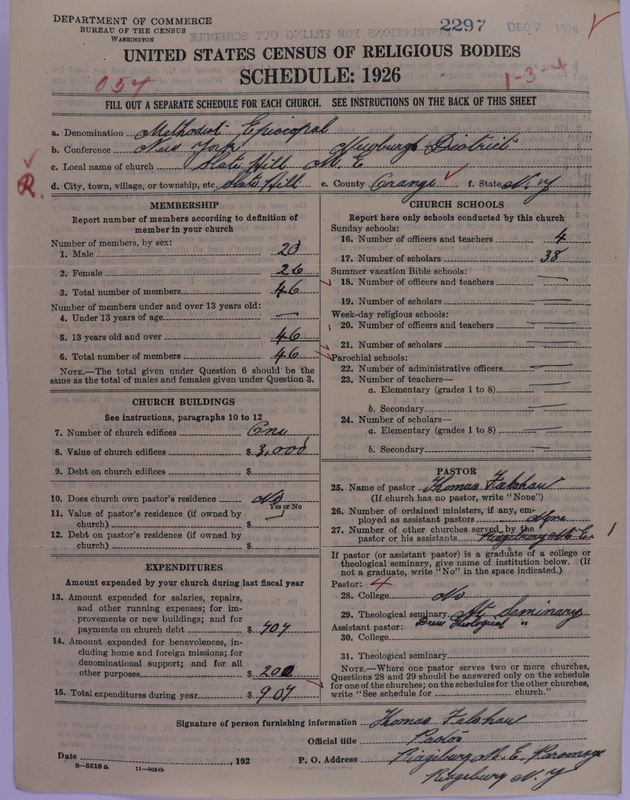 DEPARTMENT OF COMMERCE
BUREAU OF THE CENSUS
WASHINGTON
2297 DEC 7 1926
UNITED STATES CENSUS OF RELIGIOUS BODIES
SCHEDULE: 1926
054
1-3-4
FILL OUT A SEPARATE SCHEDULE FOR EACH CHURCH. SEE INSTRUCTIONS ON THE BACK OF THIS SHEET
a. Denomination Methodist Episcopal
b. Conference New York Newburgh District
c. Local name of church Slate Hill M. E
R.
d. City, town, village, or township, etc. Slate Hill e. County Orange f. State N. Y
MEMBERSHIP
Report number of members according to definition of
member in your church
Number of members, by sex:
1. Male 20
2. Female 26
3. Total number of members 46
Number of members under and over 13 years old:
4. Under 13 years of age —
5. 13 years old and over 46
6. Total number of members 46
NOTE.—The total given under Question 6 should be
same as the total of males and females given under Question 3.
CHURCH BUILDINGS
See instructions, paragraphs 10 to 12
7. Number of church edifices One
8. Value of church edifices $ 3,000
9. Debt on church edifices $ —
10. Does church own pastor's residence No
Yes or No
11. Value of pastor's residence (if owned by
church) $
12. Debt on pastor's residence (if owned by
church) $
EXPENDITURES
Amount expended by your church during last fiscal year
13. Amount expended for salaries, repairs,
and other running expenses; for im-
provements or new buildings; and for
payments on church debt $ 707
14. Amount expended for benevolences, in-
cluding home and foreign missions; for
denominational support; and for all
other purposes $ 200
15. Total expenditures during year $ 907
CHURCH SCHOOLS
Report here only schools conducted by this church
Sunday schools:
16. Number of officers and teachers 4
17. Number of scholars 38
Summer vacation Bible schools:
18. Number of officers and teachers —
19. Number of scholars —
Week-day religious schools:
20. Number of officers and teachers —
21. Number of scholars —
Parochial schools:
22. Number of administrative officers —
23. Number of teachers—
a. Elementary (grades 1 to 8) —
b. Secondary —
24. Number of scholars—
a. Elementary (grades 1 to 8) —
b. Secondary —
PASTOR
25. Name of pastor Thomas Falshaw
(If church has no pastor, write "None")
26. Number of ordained ministers, if any, em-
ployed as assistant pastors None
27. Number of other churches served by the
pastor or his assistants Ridgebury M. E. 1
If pastor (or assistant pastor) is a graduate of a college or
theological seminary, give name of institution below. (If
not a graduate, write "No" in the space indicated.)
Pastor: 4
28. College No
29. Theological seminary At Seminary
Assistant pastor: Drew Theological "
30. College
31. Theological seminary
NOTE.—Where one pastor serves two or more churches,
Questions 28 and 29 should be answered only on the schedule
for one of the churches; on the schedules for the other churches,
write "See schedule for church."
Signature of person furnishing information Thomas Falshaw
Official title Pastor
Date , 192 P. O. Address Ridgebury M. E. Parsonage
8—5518a 11—9054b Ridgebury N. Y